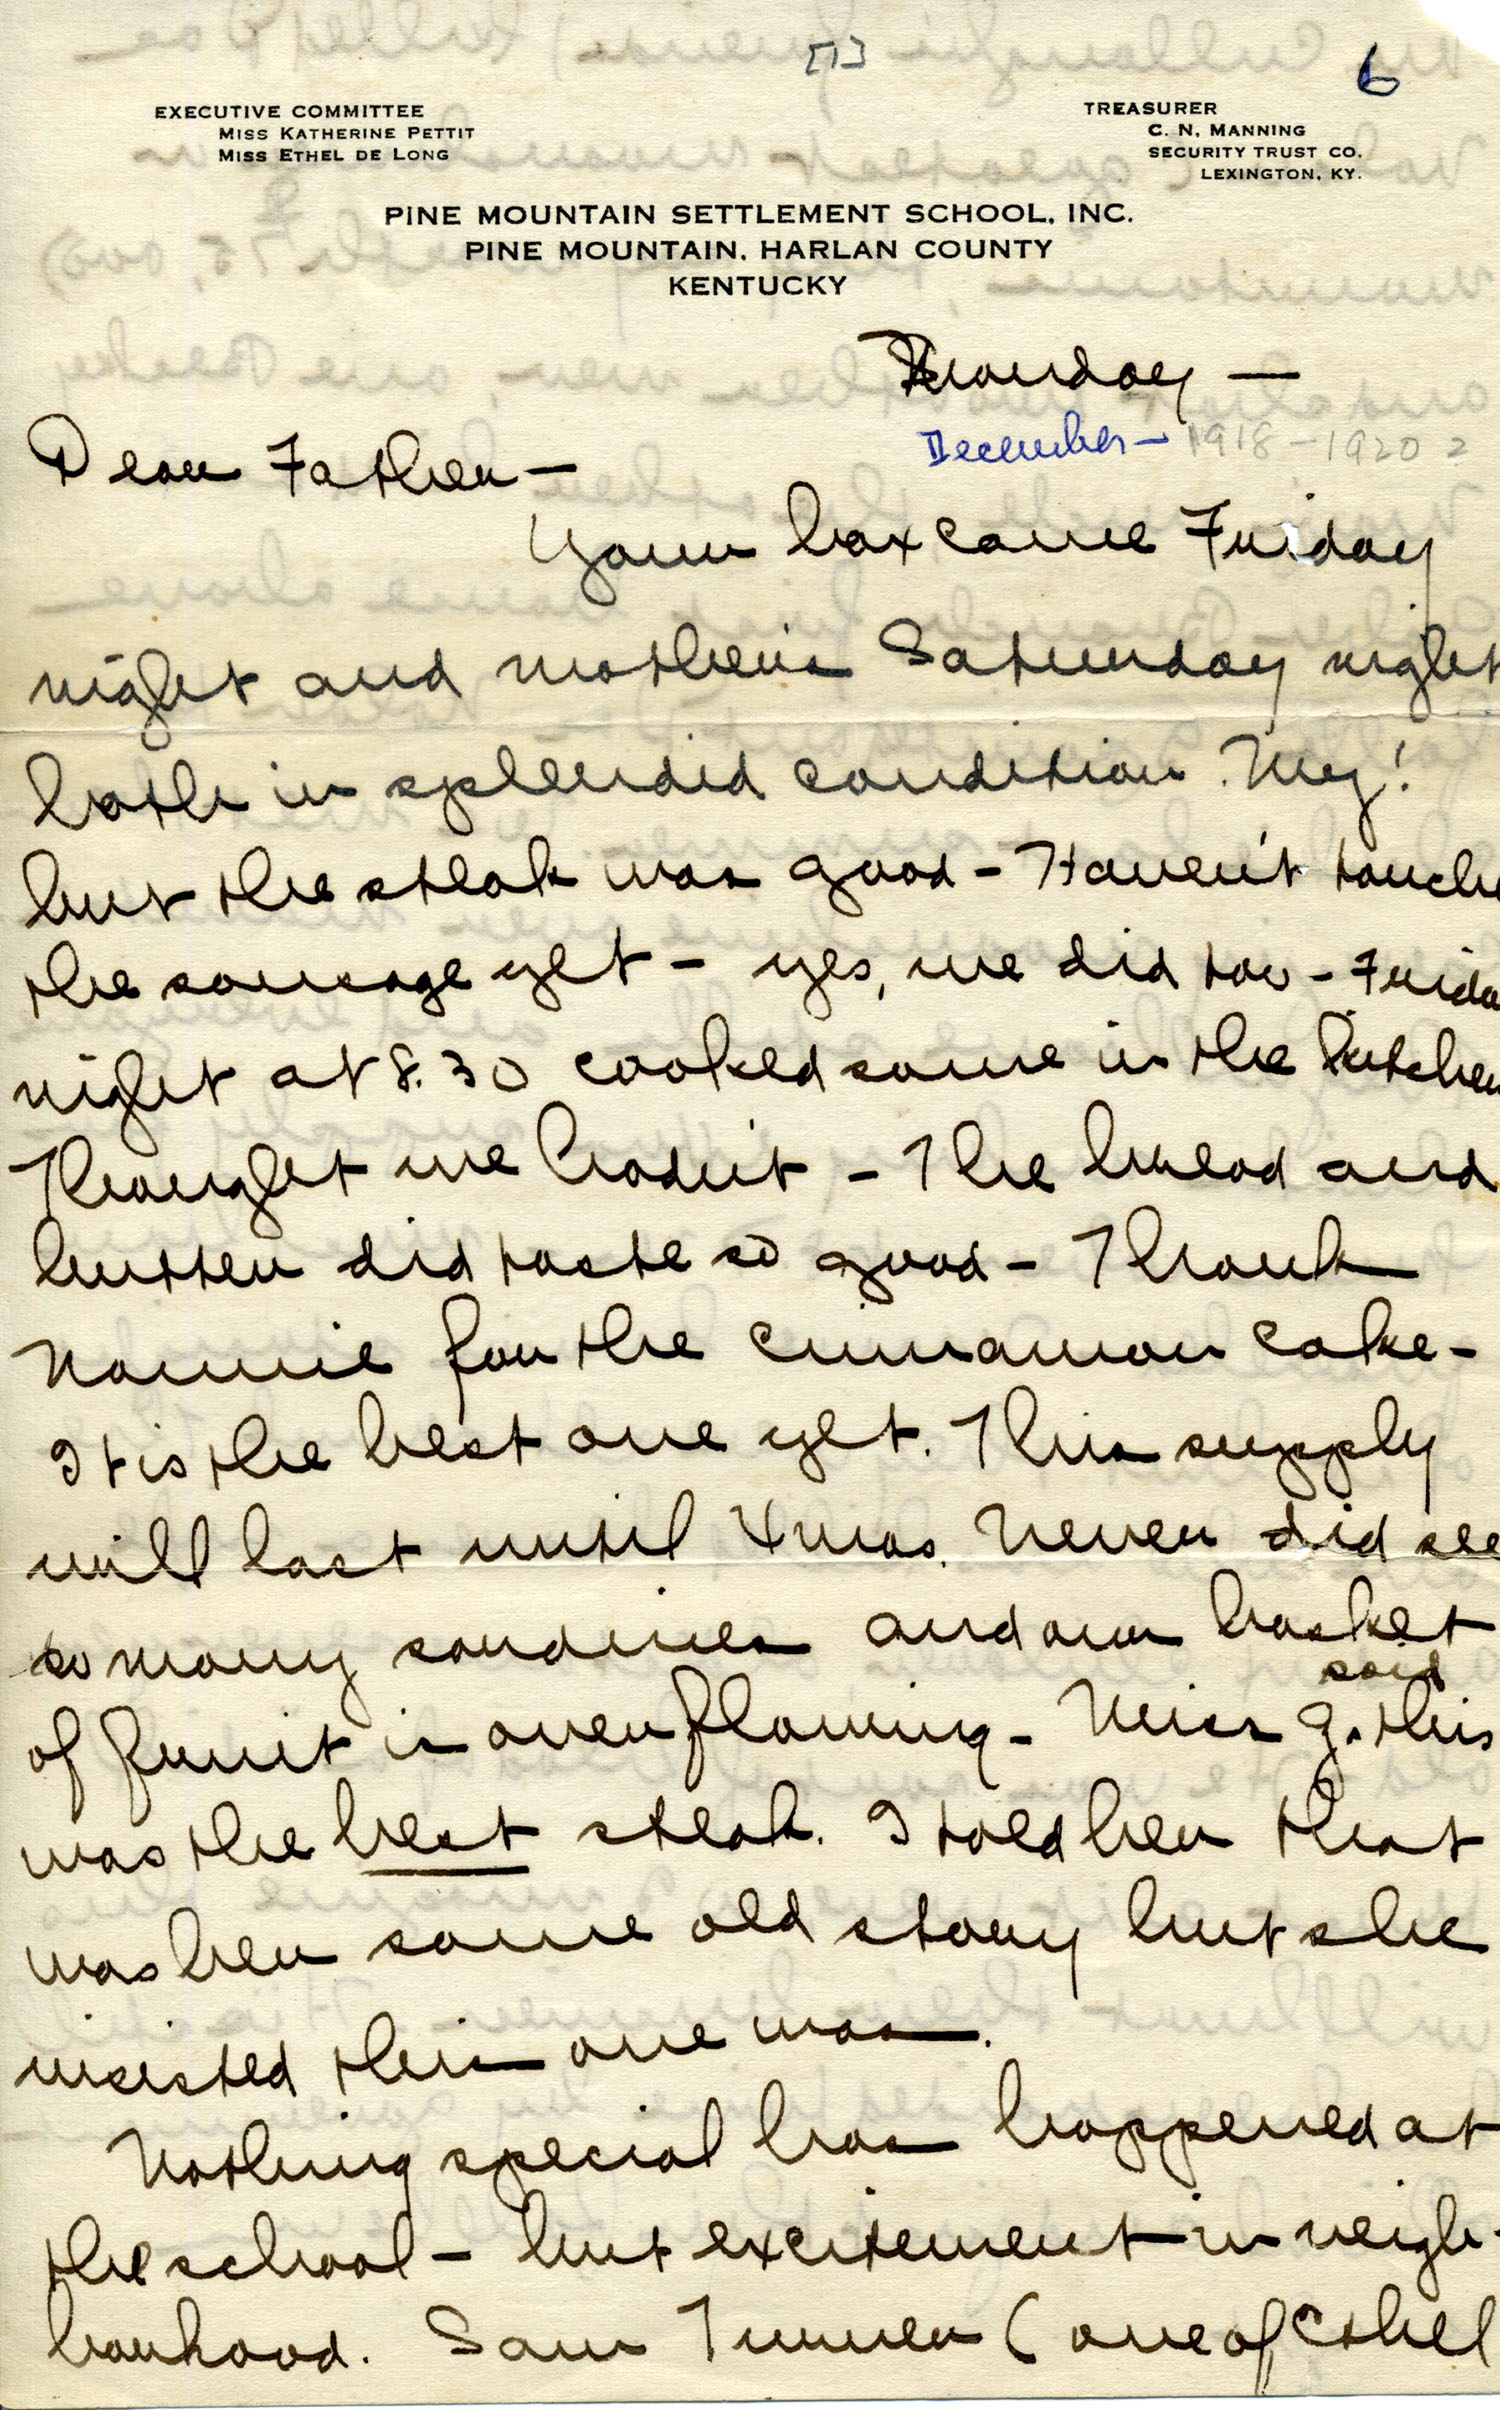 [1]
6
EXECUTIVE COMMITTEE
MISS KATHERINE PETTIT
MISS ETHEL DE LONG
TREASURER
C. N. MANNING
SECURITY TRUST CO.
LEXINGTON, KY.
PINE MOUNTAIN SETTLEMENT SCHOOL, INC.
PINE MOUNTAIN, HARLAN COUNTY
KENTUCKY
Monday —
December — 1918 - 1920 ?
Dear Father —
Your box came Friday
night and mother's Saturday night
both in splendid condition. My!
but the steak was good - Haven't touche
the sausage yet - yes, we did too - Frida
night at 8.30 cooked some in the kitchen
Thought we hadn't - The bread and
butter did taste so good - Thank
Nannie for the cinnamon cake -
It is the best one yet. This supply
will last until Xmas. Never did see
so many sardines and our basket
of fruit is overflowing - Miss G. said this
was the best steak. I told her that
was her same old story but she
insisted this one was.
Nothing special has happened at
the school - but excitement in neigh-
borhood. Sam Turner (one of Ethel